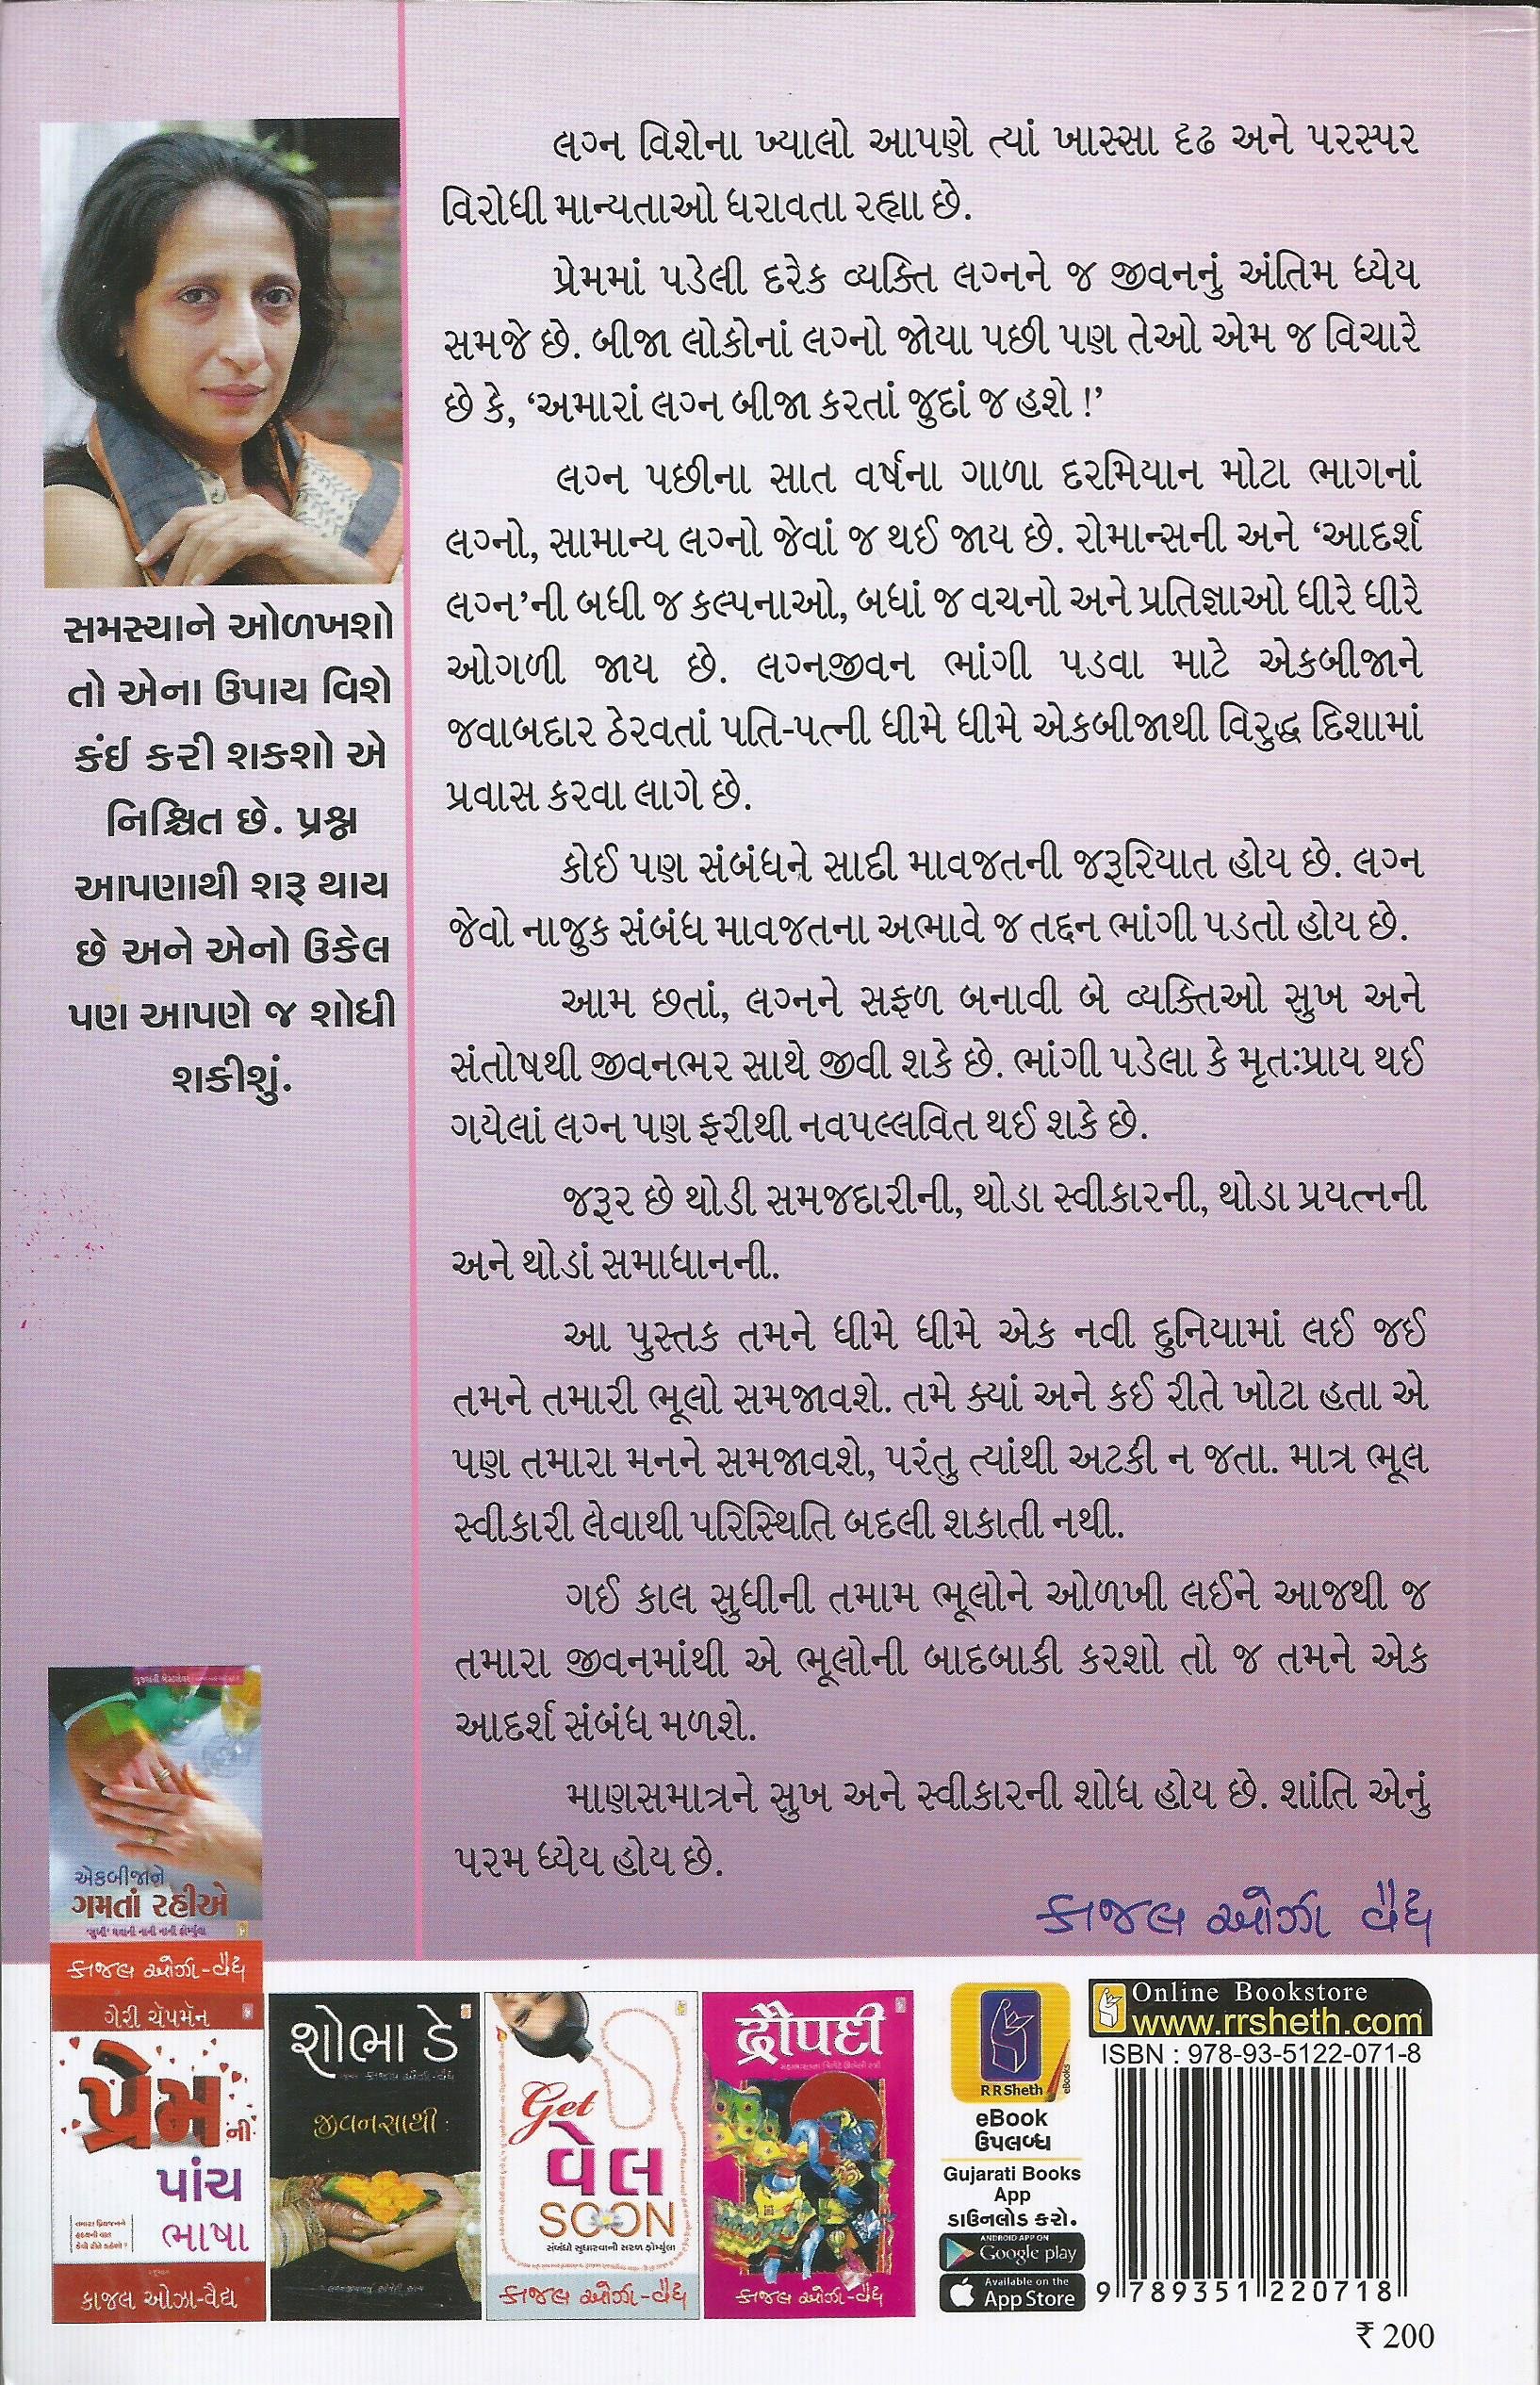 લગ્ન વિશેના ખ્યાલો આપણે ત્યાં ખાસ્સા દૃઢ અને પરસ્પર
વિરોધી માન્યતાઓ ધરાવતા રહ્યા છે.
પ્રેમમાં પડેલી દરેક વ્યક્તિ લગ્નને જ જીવનનું અંતિમ ધ્યેય
સમજે છે. બીજા લોકોનાં લગ્નો જોયા પછી પણ તેઓ એમ જ વિચારે
છે કે, ‘અમારાં લગ્ન બીજા કરતાં જુદાં જ હશે !’
લગ્ન પછીના સાત વર્ષના ગાળા દરમિયાન મોટા ભાગનાં
લગ્નો, સામાન્ય લગ્નો જેવાં જ થઈ જાય છે. રોમાન્સની અને ‘આદર્શ
લગ્ન’ની બધી જ કલ્પનાઓ, બધાં જ વચનો અને પ્રતિજ્ઞાઓ ધીરે ધીરે
ઓગળી જાય છે. લગ્નજીવન ભાંગી પડવા માટે એકબીજાને
જવાબદાર ઠેરવતાં પતિ-પત્ની ધીમે ધીમે એકબીજાથી વિરુદ્ધ દિશામાં
પ્રવાસ કરવા લાગે છે.
કોઈ પણ સંબંધને સાદી માવજતની જરૂરિયાત હોય છે. લગ્ન
જેવો નાજુક સંબંધ માવજતના અભાવે જ તદ્દન ભાંગી પડતો હોય છે.
આમ છતાં, લગ્નને સફળ બનાવી બે વ્યક્તિઓ સુખ અને
સંતોષથી જીવનભર સાથે જીવી શકે છે. ભાંગી પડેલા કે મૃતઃપ્રાય થઈ
ગયેલાં લગ્ન પણ ફરીથી નવપલ્લવિત થઈ શકે છે.
જરૂર છે થોડી સમજદારીની, થોડા સ્વીકારની, થોડા પ્રયત્નની
અને થોડાં સમાધાનની.
આ પુસ્તક તમને ધીમે ધીમે એક નવી દુનિયામાં લઈ જઈ
તમને તમારી ભૂલો સમજાવશે. તમે ક્યાં અને કઈ રીતે ખોટા હતા એ
પણ તમારા મનને સમજાવશે, પરંતુ ત્યાંથી અટકી ન જતા. માત્ર ભૂલ
સ્વીકારી લેવાથી પરિસ્થિતિ બદલી શકાતી નથી.
ગઈ કાલ સુધીની તમામ ભૂલોને ઓળખી લઈને આજથી જ
તમારા જીવનમાંથી એ ભૂલોની બાદબાકી કરશો તો જ તમને એક
આદર્શ સંબંધ મળશે.
માણસમાત્રને સુખ અને સ્વીકારની શોધ હોય છે. શાંતિ એનું
પરમ ધ્યેય હોય છે.
કાજલ ઓઝા વૈદ્ય
સમસ્યાને ઓળખશો
તો એના ઉપાય વિશે
કંઈ કરી શકશો એ
નિશ્ચિત છે. પ્રશ્ન
આપણાથી શરૂ થાય
છે અને એનો ઉકેલ
પણ આપણે જ શોધી
શકીશું.
એકબીજાને
ગમતાં રહીએ
કાજલ ઓઝા-વૈદ્ય
ગેરી ચૅપમૅન
પ્રેમની
પાંચ
ભાષા
કાજલ ઓઝા-વૈદ્ય
શોભા ડે
કાજલ ઓઝા-વૈદ્ય
જીવનસાથી
Get
વેલ
SOON
સંબંધો સુધારવાની સરળ ફોર્મ્યુલા
કાજલ ઓઝા-વૈદ્ય
દ્રૌપદી
કાજલ ઓઝા-વૈદ્ય
RRSheth
eBooks
eBook
ઉપલબ્ધ
Gujarati Books
App
ડાઉનલોડ કરો.
ANDROID APP ON
Google play
Available on the
App Store
Online Bookstore
www.rrsheth.com
ISBN : 978-93-5122-071-8
9 789351 220718
₹ 200